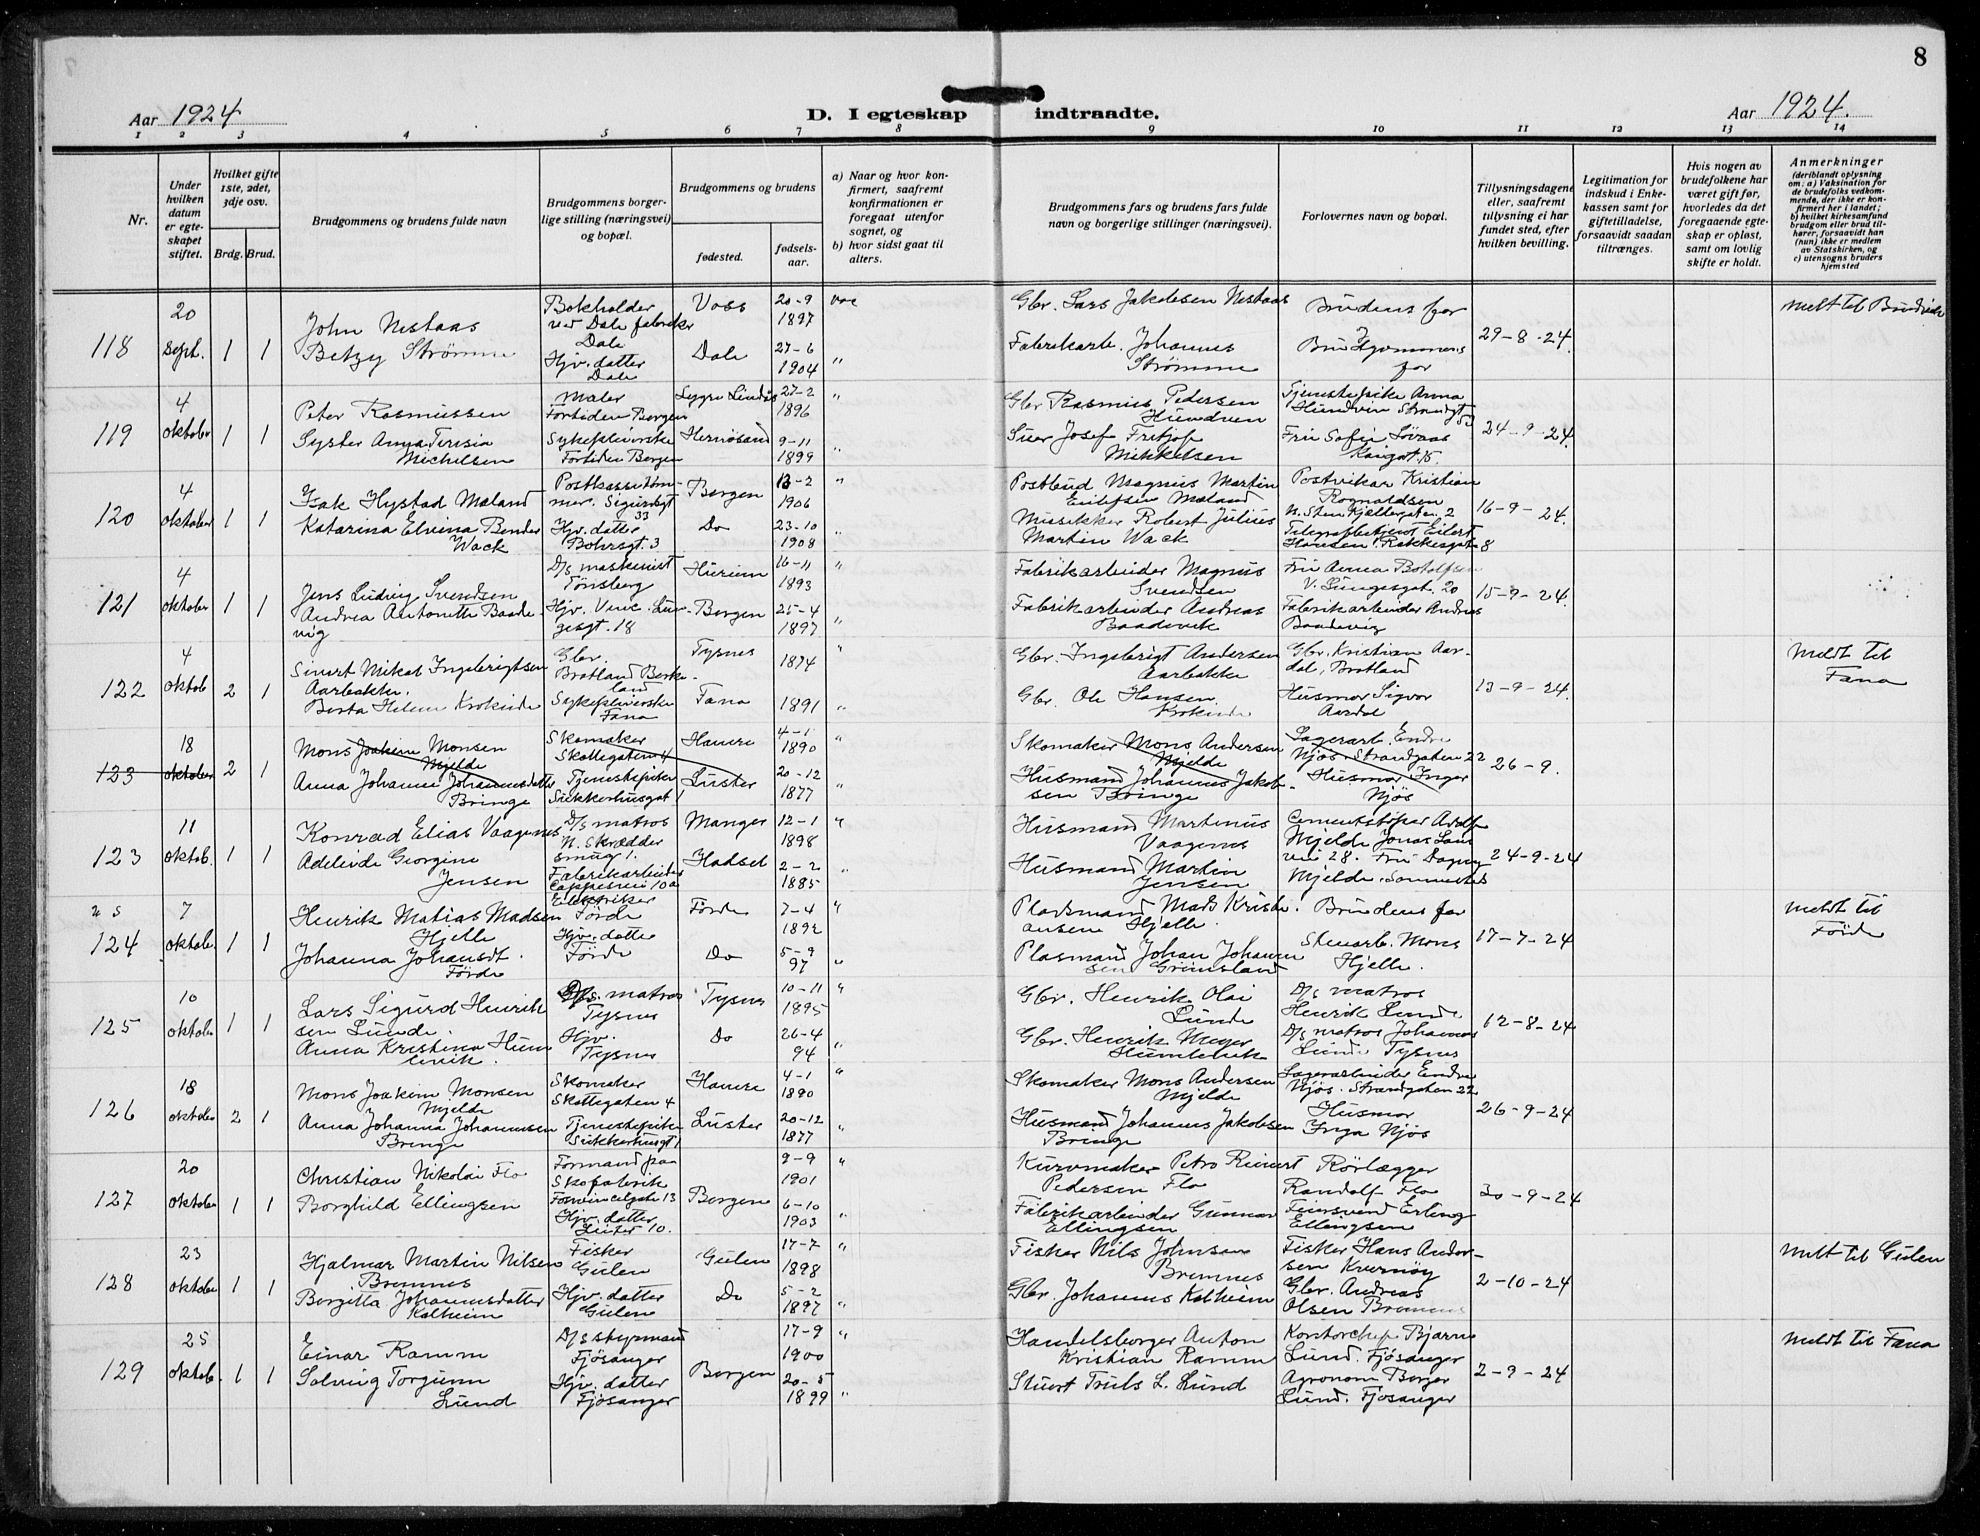 8
Aar 1924
D. I egteskap indtraadte.
Aar 1924.
1 2 3 4 5 6 7 8 9 10 11 12 13 14
Nr.
Under hvilken datum er egteskapet stiftet.
Hvilket gifte 1ste, 2det, 3dje osv.
Brdg. Brud.
Brudgommens og brudens fulde navn
Brudgommens borgerlige stilling (næringsvei) og bopæl.
Brudgommens og brudens
fødested.
fødselsaar.
a) Naar og hvor konfirmert, saafremt konfirmationen er foregaat utenfor sognet, og
b) hvor sidst gaat til alters.
Brudgommens fars og brudens fars fulde navn og borgerlige stillinger (næringsvei).
Forlovernes navn og bopæl.
Tillysningsdagene eller, saafremt tillysning ei har fundet sted, efter hvilken bevilling.
Legitimation for indskud i Enkekassen samt for giftetilladelse, forsaavidt saadan tiltrænges.
Hvis nogen av brudefolkene har været gift før, hvorledes da det foregaaende egteskap er opløst, samt om lovlig skifte er holdt.
Anmerkninger
(deriblandt oplysning om: a) Vaksination for de brudefolks vedkommende, der ikke er konfirmert her i landet; b) hvilket kirkesamfund brudgom eller brud tilhører, forsaavidt han (hun) ikke er medlem av Statskirken, og c) utensogns bruders hjemsted
118 20 Sept. 1 1
John Nestaas
Betzy Strømme
Bokholder
ved Dale fabrikker
Dale
Hjv. datter
Dale
Voss
Dale
20-9
1897
27-6
1904
Gbr. Lars Jakobsen Nestaas
Fabrikarb. Johannes
Strømme
Brudens far
Brudgommens
far
29-8-24.
119 4 oktober 1 1
Peter Rasmussen
Syster Anna Teresia
Michelsen
Maler
Fortiden Bergen
Sykepleierske
Fortiden Bergen
Hernösand
27-2
1896
9-11
1899
Gbr Rasmus Pedersen
Hundven
Josef Fritjof
Mikkelsen
Tjenestepike Anna
Hundvin Strandgt 53
Fru Sofie Løvaas
24-9-24.
120 4 oktober 1 1
Isak Hystad Mæland
Katarina Elvina Bender
Wack
Sigurdsgt
33
Hjv. datter
Bohrsgt. 3
Bergen
Do
13-2
1906
23-10
1908
Postbud Magnus Martin
Eilefsen Mæland
Musikker Robert Julius
Martin Wack
Postvikar Kristian
Rognaldsen
16-9-24.
121 4 oktober 1 1
Jens Ludvig Svendsen
Andrea Antonette Baade-
vig
D/s maskinist
Tønsberg
Hjv. Vinc. Lun-
gesgt. 18
Hurum
Bergen
16-11
1893
25-4
1897
Fabrikarbeider Magnus
Svendsen
Fabrikarbeider Andreas
Baadevik
Fru Anna Botolfsen
V. Lungesgat. 20
Fabrikarbeider Andreas
Baadevig
15-9-24.
122 4 oktob 2 1
Sivert Mikal Ingebrigtsen
Aarbakke.
Berta Helene Krokeide
Gbr.
Sykepleierske
Fana
Tysnes
Fana
1874
1891
Gbr. Ingebrigt Andersen
Aarbakke
Gbr. Ole Hansen
Krokeide
Gbr. Kristian Aar-
dal, Bratland
Husmor Sigvor
Aardal
13-9-24.
Meldt til
Fana
123 18 oktober 2 1
Mons Joakim Monsen
Mjelde
Anna Johanne Johannesdatter
Bringe
Skomaker
Skottegaten 4
Tjenestepike
Sukkerhusgat 1
Hamre
Luster
4-1
1890
20-12
1877
Skomaker Mons Andersen
Mjelde
Husmand Johannes Jakob-
sen Bringe
Lagerarb. Endre
Njøs. Strandgaten 22
Husmor Inger
Njøs
26-9.
123 11 oktob. 1 1
Konrad Elias Vaagenes
Adeleide Georgine
Jensen
D/s matros
N. Skrædder
smug 1.
Fabrikarbeider
Manger
Hadsel
12-1
1898
2-2
1885
Husmand Martinus
Vaagenes
Husmand Martin
Jensen
Cementstøper Adolf
Mjelde Jonas Lies
vei 28. Fru Dagny
Mjelde
24-9-24
124 7 oktob. 1 1
Henrik Matias Madsen
Hjelle
Johanna Johansdt.
Førde
Elektriker
Førde
Hjv. datter
Førde
Førde
Do
7-4
1892
5-9
97
Pladsmand Mads Kristi-
ansen Hjelle.
Plasmand Johan Johann
sen Grimsland
Brudens far
Stenarb. Mons
Hjelle.
17-7-24
Meldt til
Førde
125 10 oktober 1 1
Lars Sigurd Henrik
sen Lunde.
Anna Kristina Hum
levik.
D/s. matros
Tysnes
Hjv.
Tysnes
Tysnes
Do
10-11
1895
26-4
94
Gbr. Henrik Olai
Lunde
Gbr. Henrik Meyer
Humlevik
D/s matros
Henrik Lunde
D/s matros Johannes
Lunde Tysnes
12-8-24
126 18 oktober 2 1
Mons Joakim Monsen
Mjelde
Anna Johanna Johannesen
Bringe
Skomaker
Skottegaten 4
Tjenestepike
Sukkerhusgt 1
Hamre
Luster
4-1
1890
20-12
1877
Skomaker Mons Andersen
Mjelde
Husmand Johannes Jakobsen
Bringe
Lagerarbeider Endre
Njøs. Strandgaten 22
Husmor
Inga Njøs
26-9-24
127 20 oktober 1 1
Christian Nikolai Flo
Borghild Ellingsen
Formand paa
Skofabrik
Hjv. datter
Bergen
9-9
1901
6-10
1903
Kurvmaker Petro Rienert
Pedersen Flo
Fabrikarbeider Gunnar
Ellingsen
Rørlægger
Randolf Flo
Erling
Ellingsen
30-9-24
128 23 oktober 1 1
Hjalmar Martin Nilsen
Bremnes
Bergitta Johannesdatter
Kalheim
Fisker
Gulen
Hjv. datter
Gulen
Gulen
Do
17-7
1898
5-2
1897
Fisker Nils Johnsen
Bremnes
Gbr. Johannes Kalheim
Fisker Hans Ander-
sen Kvernøy
Gbr. Andreas
Olsen Bremnes
2-10-24
Meldt til Gulen
129 25 oktob. 1 1
Einar Ramm
Solveig Torgunn
Lund
D/s styrmand
Fjøsanger
Hjv. datter
Fjøsanger
Bergen
17-9
1900
20-5
1899
Handelsborger Anton
Kristian Ramm
Stuert Truls L. Lund
Kontorchef Bjarne
Lund. Fjøsanger
Agronom Berger
Lund. Fjøsanger
2-9-24
Meldt til Fana